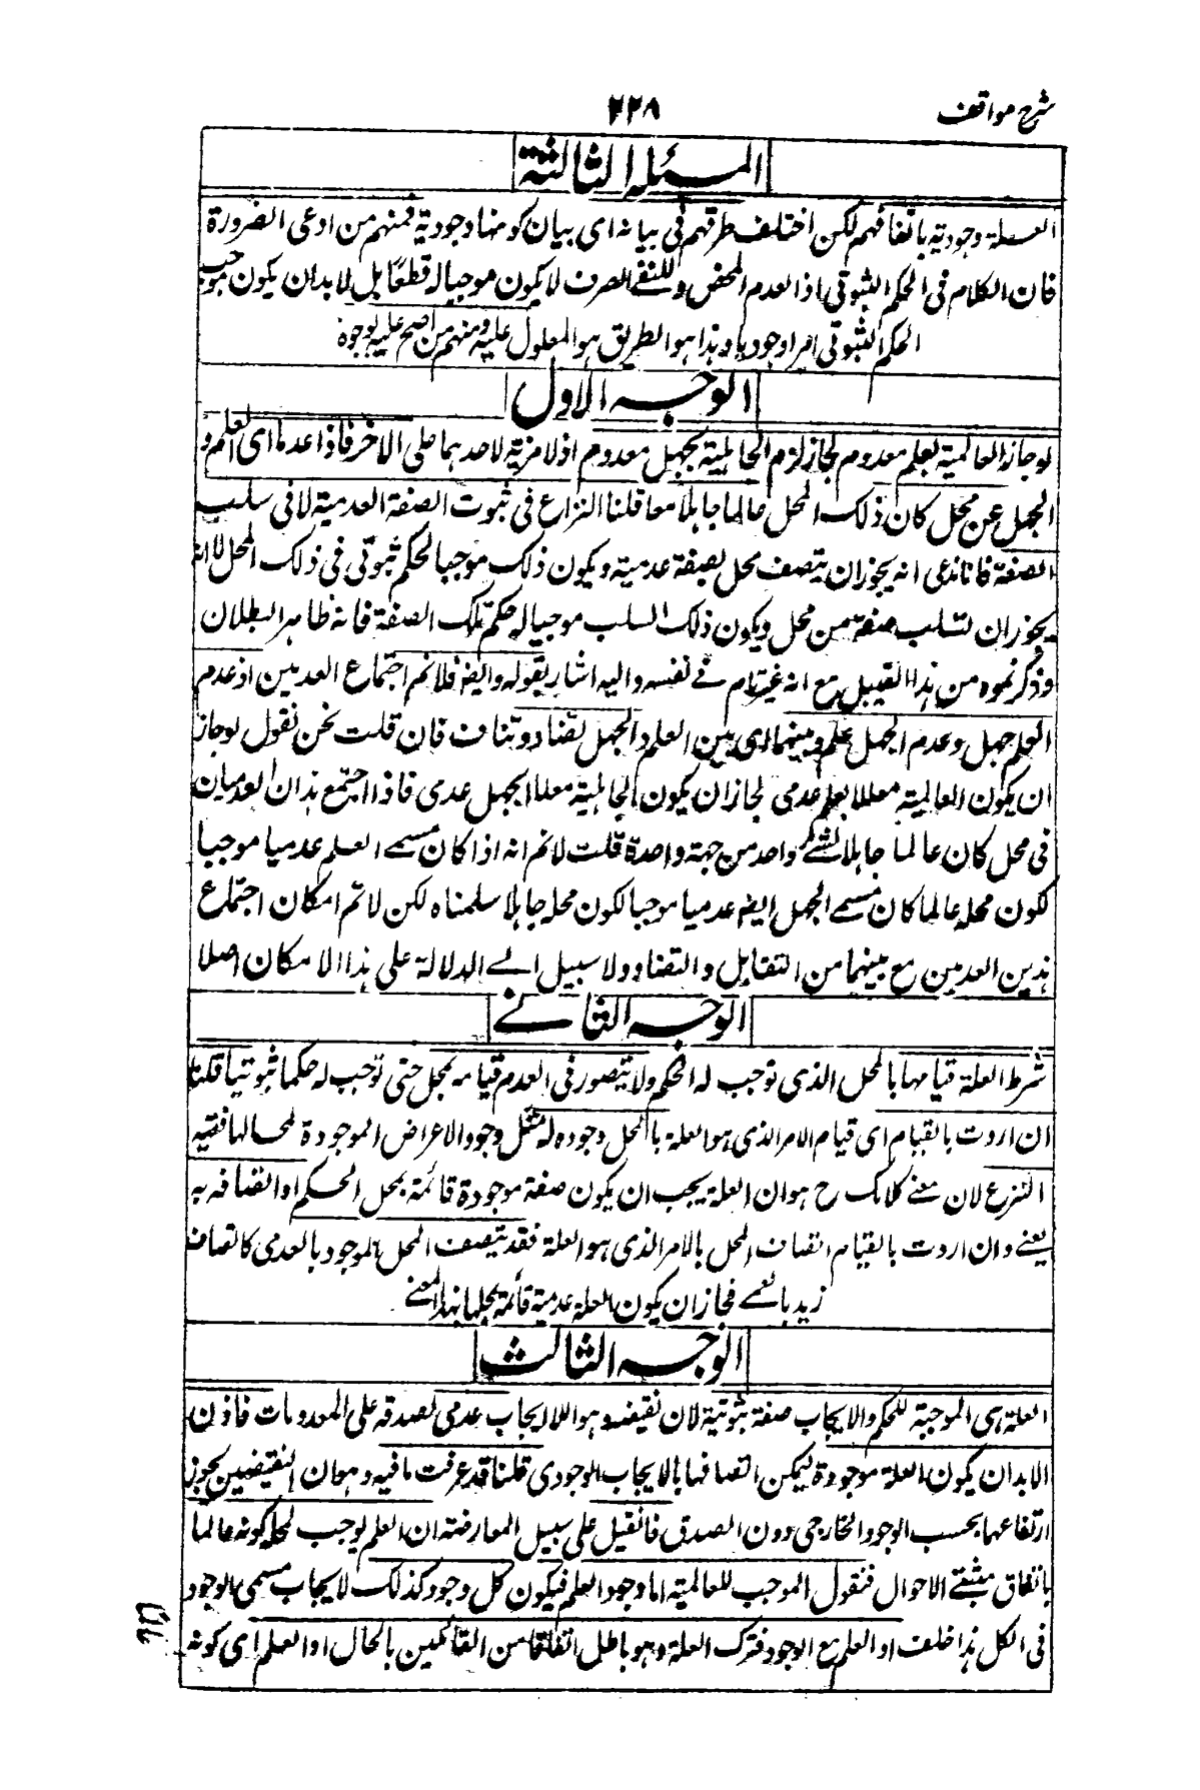 شرح مواقف
٢٢٨
المسئلة الثالثة
العلة وجودية باتفاقهم لكن اختلف طرقهم في بيانه اى بيان كونها وجودية فمنهم من ادعى الضرورة
فان الكلام فى الحكم الثبوتى اذ العدم المحض والنفى الصرف لا يكون موجبا له قطعا بل لا بدان يكون موجب
الحكم الثبوتى امرا وجوديا وهذا هو الطريق هو المعول عليه ومنهم من احتج عليه بوجوه
الوجه الاول
لو جاز العالمية بعلم معدوم لجاز لزم الجاهلية بجهل معدوم اذ لا مزية لاحدهما على الاخر فاذا عدما اى العلم و
الجهل عن محل كان ذلك المحل عالما جاهلا معا قلنا النزاع فى ثبوت الصفة العدمية لا فى سلب
الصفة فانا ندعى انه يجوز ان يتصف محل بصفة عدمية ويكون ذلك موجبا لحكم ثبوتى فى ذلك المحل لا انه
يجوز ان تسلب صفة من محل ويكون ذلك السلب موجبا له حكم تلك الصفة فانه ظاهر البطلان
وذكرتموه من هذا القبيل مع انه غير تام فے نفسه واليه اشار بقوله وايضا فلا نم اجتماع العدمين اذ عدم
العلم جهل وعدم الجهل علم وبينهما اى بين العلم والجهل تضاد وتناف فان قلت نحن نقول لو جاز
ان يكون العالمية معللا بعلم عدمى لجاز ان يكون الجاهلية معللا بجهل عدمى فاذا اجتمع هذان العدميان
فى محل كان عالما جاهلا لشئ واحد من جهة واحدة قلت لا نم انه اذا كان مسمے العلم عدميا موجبا
لكون محله عالما كان مسمے الجهل ايضا عدميا موجبا لكون محله جاهلا سلمناه لكن لا نم امكان اجتماع
هذين العدمين مع بينهما من التقابل والتضاد ولا سبيل الے الدلالة على هذا الامكان اصلا
الوجه الثانے
شرط العلة قيامها بالمحل الذى توجب له الحكم ولا يتصور فى العدم قيامه بمحل حتى توجب له حكما ثبوتيا قلنا
ان اردت بالقيام اى قيام الامر الذى هو العلة بالمحل وجوده له مثل وجود الاعراض الموجودة لمحالها ففيه
النزع لان معنے كلامك ح هو ان العلة يجب ان يكون صفة موجودة قائمة بمحل الحكم او اتصافه به
يعنے وان اردت بالقيام اتصاف المحل بالامر الذى هو العلة فقد يتصف المحل الموجود بالعدمى كاتصاف
زيد بالعمے فجاز ان يكون العلة عدمية قائمة بمحلها بهذا المعنے
الوجه الثالث
العلة هى الموجبة للحكم والايجاب صفة ثبوتية لان نقيضه وهو اللاايجاب عدمى لصدقه على المعدومات فاذن
لا بد ان يكون العلة موجودة ليمكن اتصافها بالايجاب الوجودى قلنا قد عرفت ما فيه وهو ان النقيضين يجوز
ارتفاعهما بحسب الوجود الخارجى دون الصدق فان قيل على سبيل المعارضة ان العلم يوجب لمحله كونه عالما
باتفاق مثبتے الاحوال فنقول الموجب للعالمية اما وجود العلم فيكون كل وجود كذلك لايجاب مسمى الوجود
فى الكل هذا خلف او العلم مع الوجود فتركب العلة وهو باطل اتفاقا من القائلين بالحال او العلم اى كونه